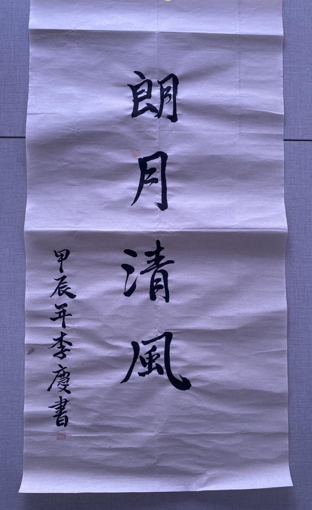 朗月清風
甲辰年李慶書